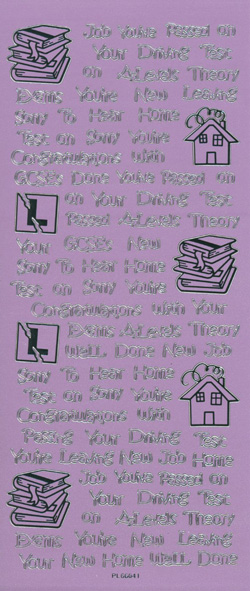 Job You've Passed on
Your Driving Test
on A-Levels Theory
Exams You're New Leaving
Sorry To Hear Home
Test on Sorry You're
Congratulations with
GCSEs Done You've Passed on
L on Your Driving Test
Passed A-Levels Theory
Your GCSEs New
Sorry To Hear Home
Test on Sorry You're
Congratulations with Your
L Exams A-Levels Theory
Well Done New Job
Sorry To Hear Home
Test on Sorry You're
Congratulations with
Passing Your Driving Test
You're Leaving New Job Home
Job You've Passed on
Your Driving Test
on A-Levels Theory
Exams You're New Leaving
Your New Home Well Done